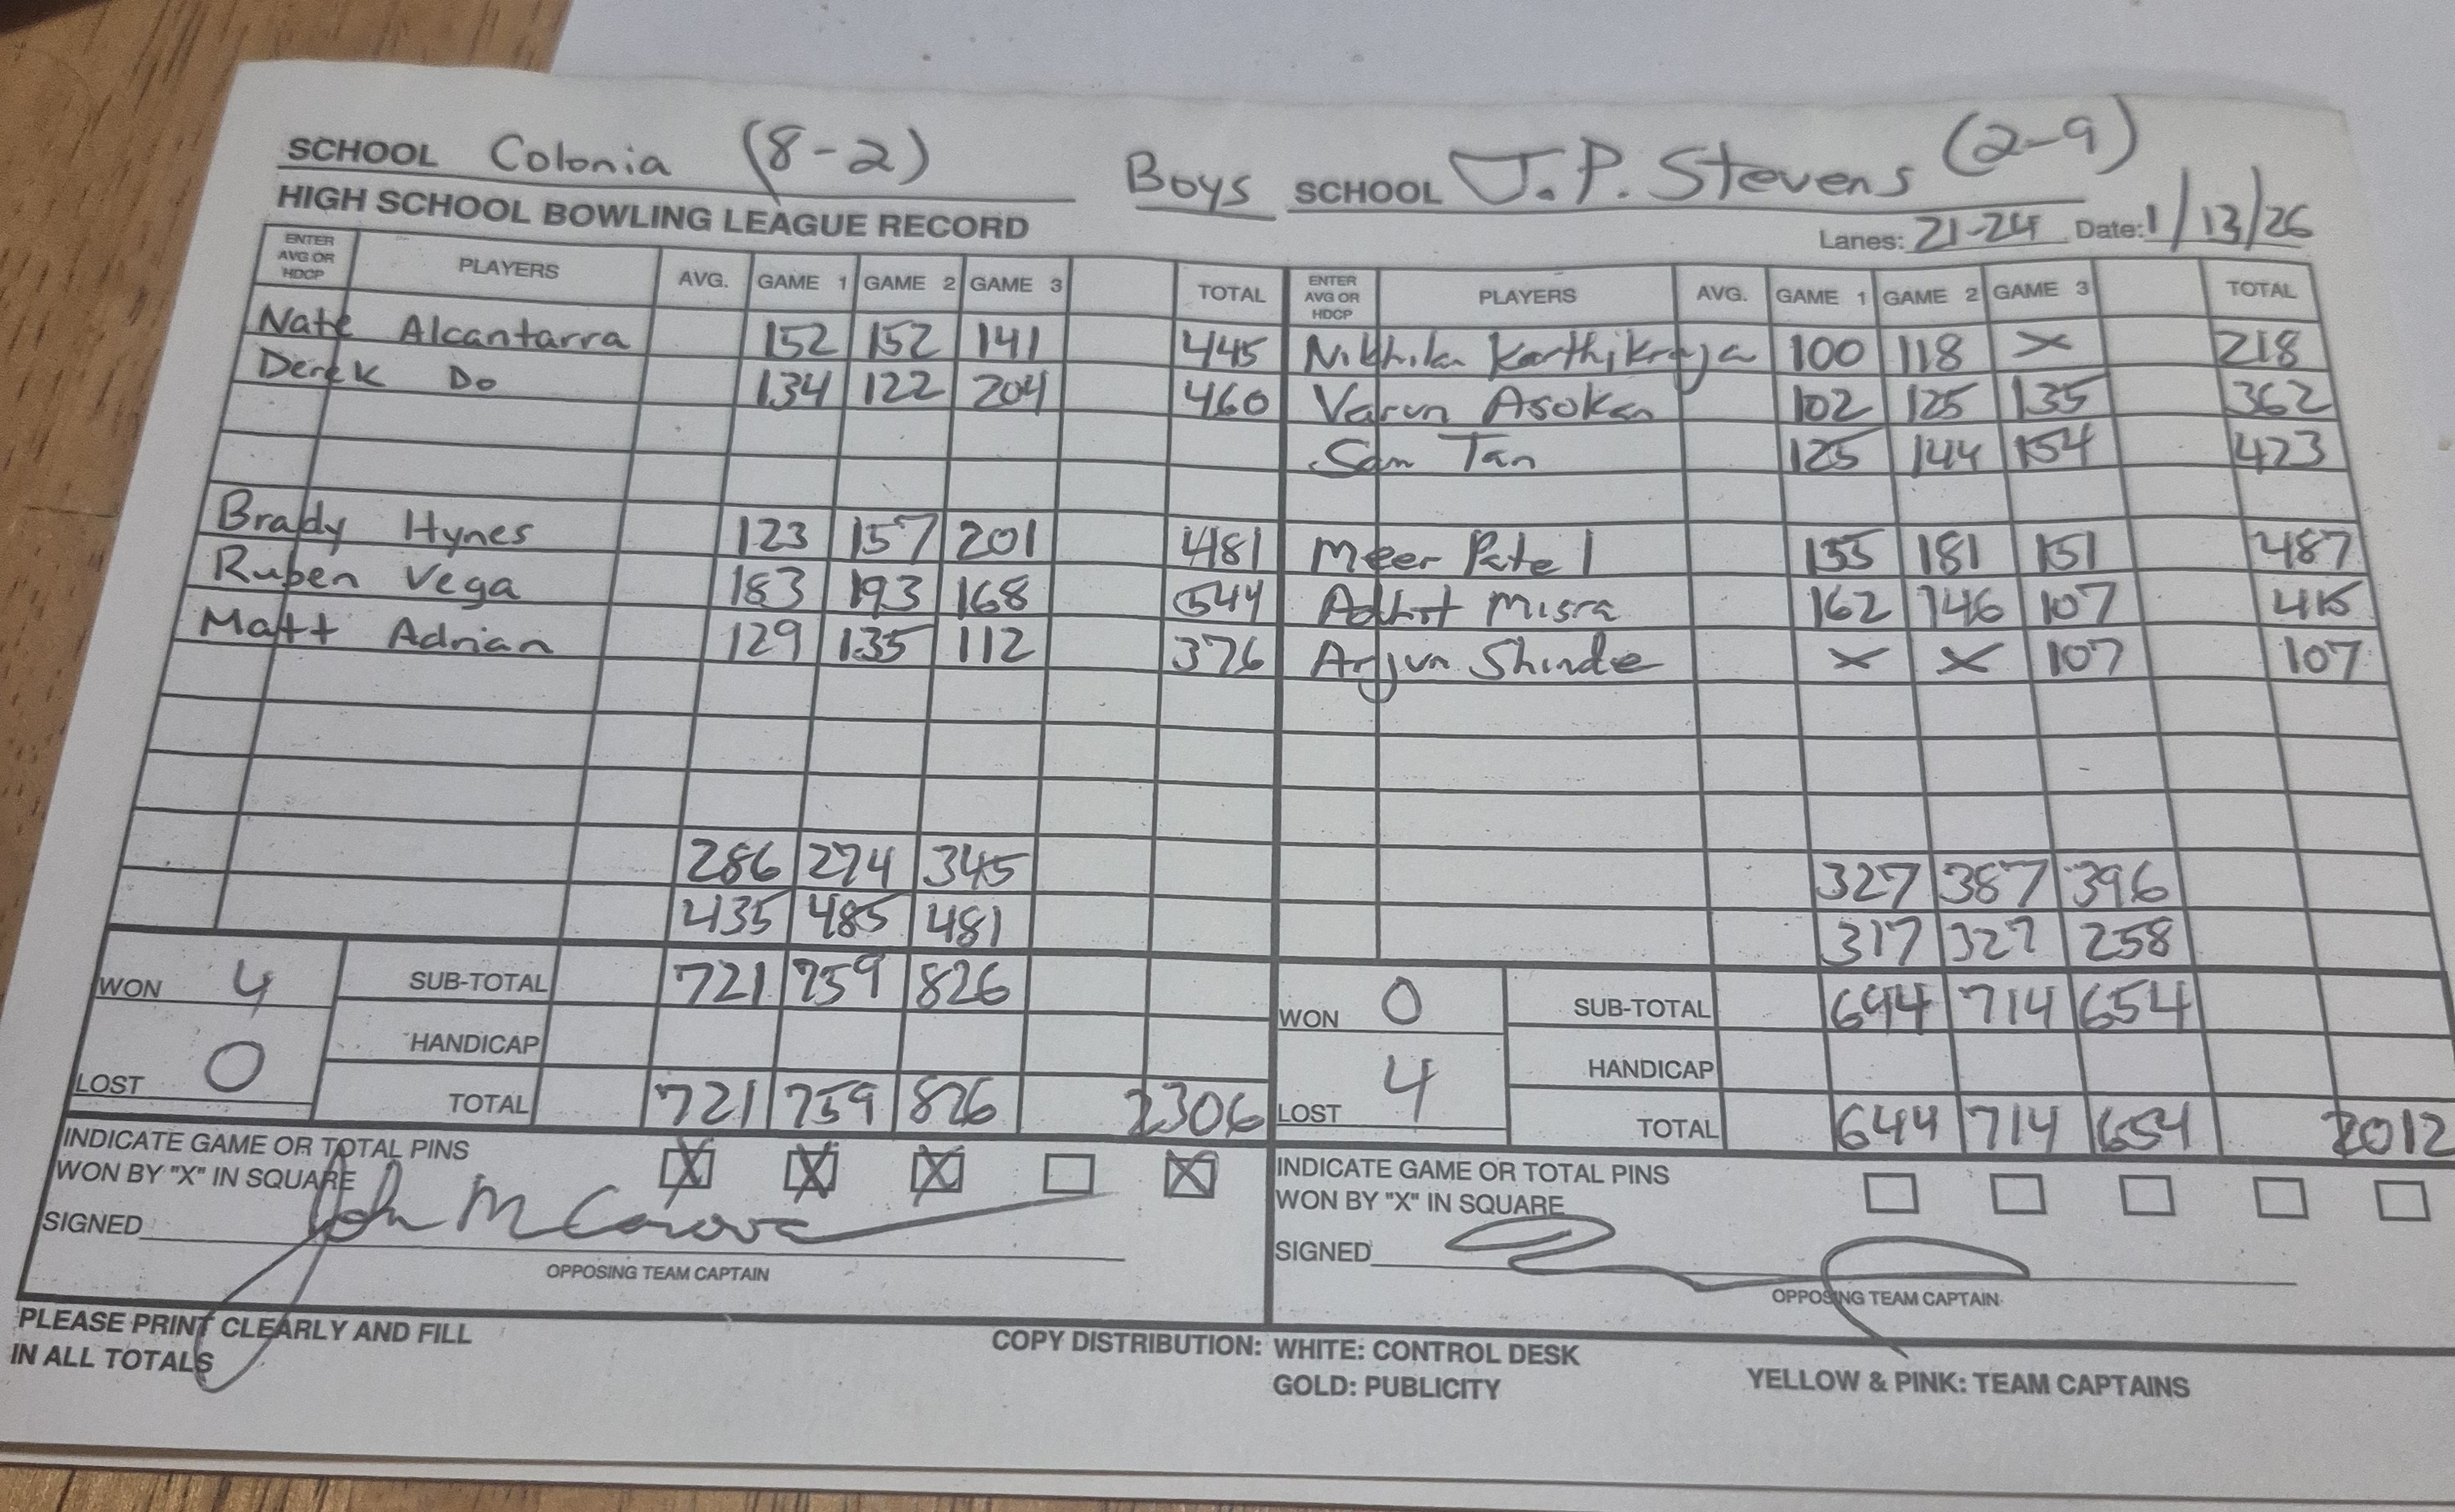 SCHOOL Colonia (8-2) Boys SCHOOL J.P. Stevens (2-9)
HIGH SCHOOL BOWLING LEAGUE RECORD Lanes: 21-24 Date: 1/13/26
ENTER AVG OR HDCP PLAYERS AVG. GAME 1 GAME 2 GAME 3 TOTAL ENTER AVG OR HDCP PLAYERS AVG. GAME 1 GAME 2 GAME 3 TOTAL
Nate Alcantarra 152 152 141 445 100 118 X 218
Derek Do 134 122 204 460 Varun Asokan 102 125 135 362
Sam Tan 125 144 154 423
Brady Hynes 123 157 201 481 Meer Patel 155 181 151 487
Ruben Vega 183 193 168 544 Misra 162 146 107 415
Matt Adrian 129 135 112 376 Arjun Shinde X X 107 107
286 274 345 327 387 396
435 485 481 317 327 258
WON 4 SUB-TOTAL 721 759 826 WON 0 SUB-TOTAL 644 714 654
HANDICAP HANDICAP
LOST 0 TOTAL 721 759 826 2306 LOST 4 TOTAL 644 714 654 2012
INDICATE GAME OR TOTAL PINS X X X X INDICATE GAME OR TOTAL PINS
WON BY "X" IN SQUARE WON BY "X" IN SQUARE
SIGNED John SIGNED
OPPOSING TEAM CAPTAIN OPPOSING TEAM CAPTAIN
PLEASE PRINT CLEARLY AND FILL COPY DISTRIBUTION: WHITE: CONTROL DESK
IN ALL TOTALS GOLD: PUBLICITY YELLOW & PINK: TEAM CAPTAINS